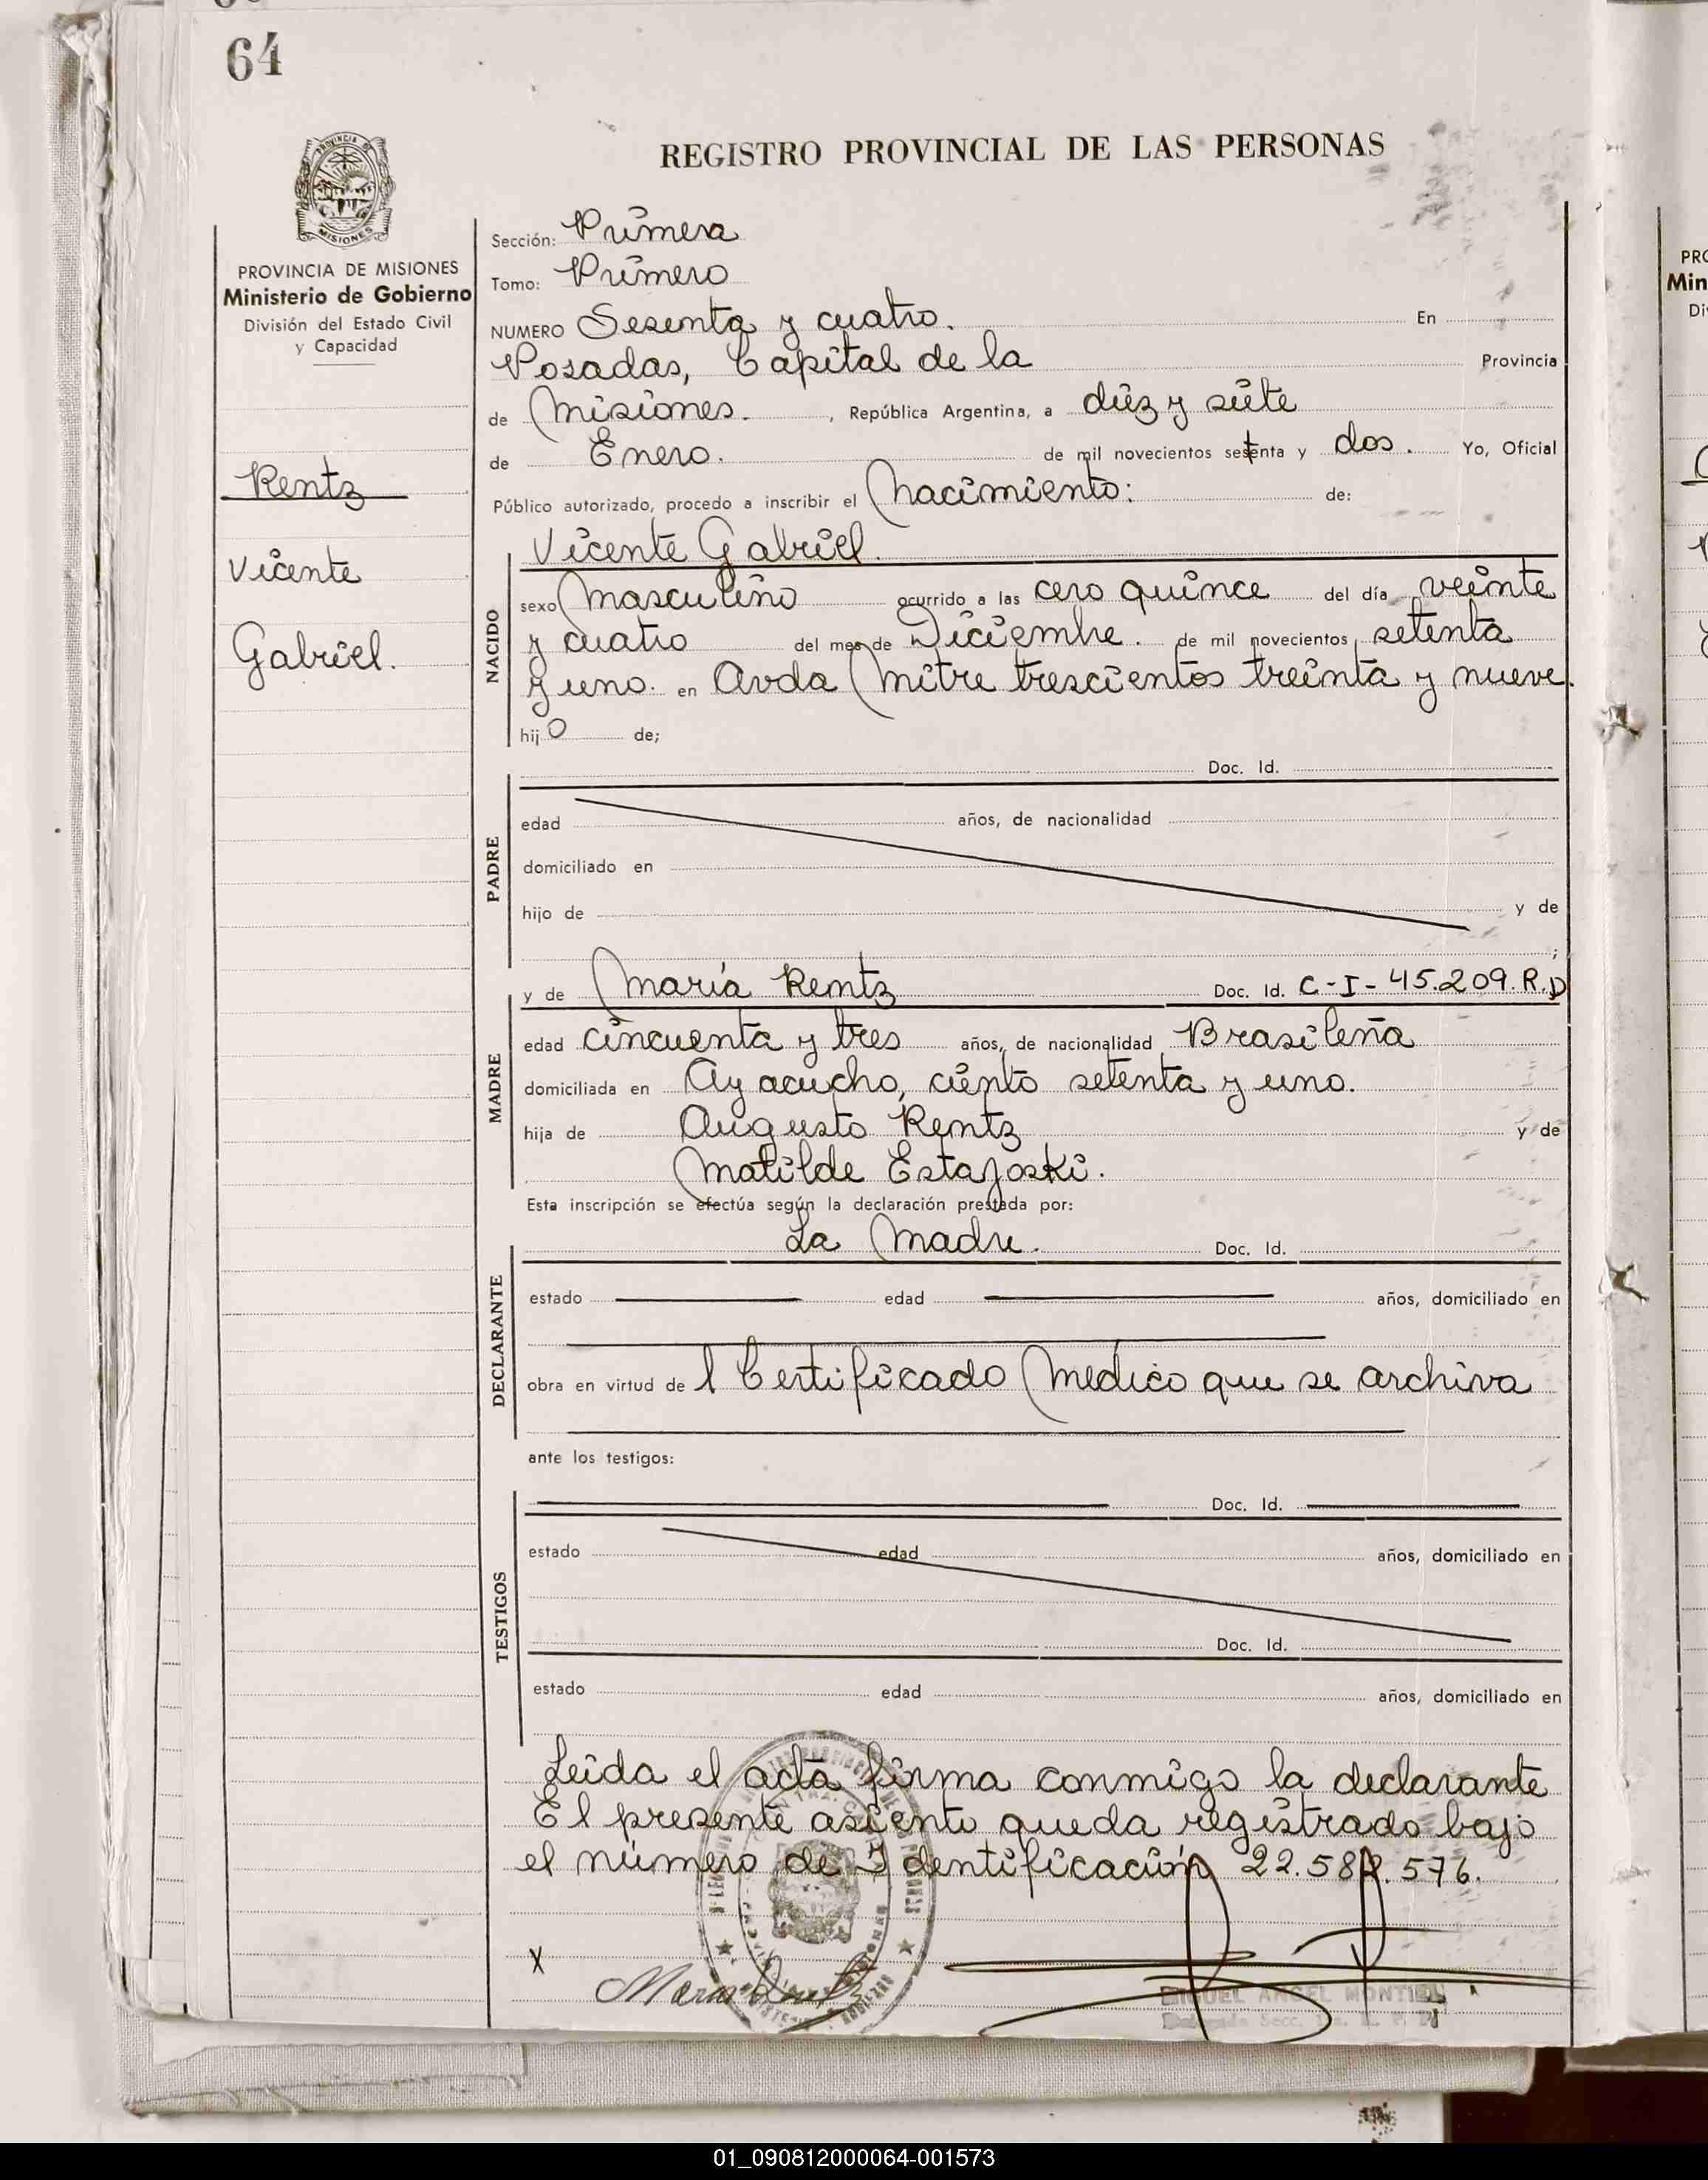 64
PROVINCIA DE
MISIONES
REGISTRO PROVINCIAL DE LAS PERSONAS
PROVINCIA DE MISIONES
Ministerio de Gobierno
División del Estado Civil
y Capacidad
Rentz
Vicente
Gabriel.
Sección: Primera
Tomo: Primero
NUMERO Sesenta y cuatro. En
Posadas, Capital de la Provincia
de Misiones. , República Argentina, a diez y siete
de Enero. de mil novecientos setenta y dos. Yo, Oficial
Público autorizado, procedo a inscribir el Nacimiento: de:
NACIDO
Vicente Gabriel.
sexo Masculino ocurrido a las cero quince del día veinte
y cuatro del mes de Diciembre. de mil novecientos setenta
y uno. en Avda Mitre trescientos treinta y nueve.
hijo de;
PADRE
Doc. Id.
edad años, de nacionalidad
domiciliado en
hijo de y de
;
MADRE
y de María Rentz Doc. Id. C-I-45.209.R.D
edad cincuenta y tres años, de nacionalidad Brasileña
domiciliada en Ayacucho, ciento setenta y uno.
hija de Augusto Rentz y de
Matilde Estajoski.
Esta inscripción se efectúa según la declaración prestada por:
DECLARANTE
La Madre. Doc. Id.
estado edad años, domiciliado en
obra en virtud de l Certificado Medico que se archiva
ante los testigos:
TESTIGOS
Doc. Id.
estado edad años, domiciliado en
Doc. Id.
estado edad años, domiciliado en
Leida el acta firma conmigo la declarante
El presente asiento queda registrado bajo
el número de Identificación 22.58 .576.
X
Maria Rentz
MIGUEL ANGEL MONTIEL
Delegado Secc. 1ra. R. P. P.
PRO
Min
Di
01_090812000064-001573